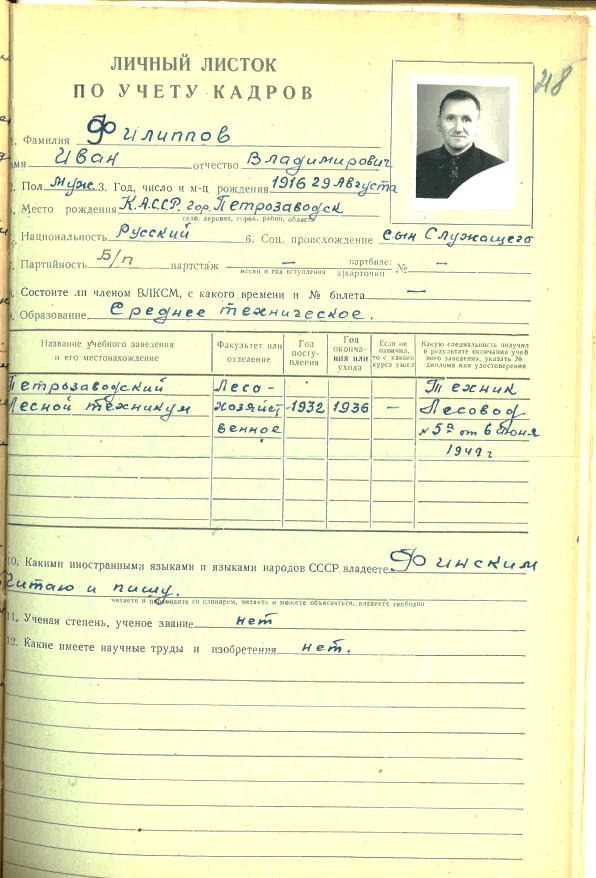 218
ЛИЧНЫЙ ЛИСТОК
ПО УЧЕТУ КАДРОВ
1. Фамилия Филиппов
мя Иван отчество Владимирович
2. Пол муж. 3. Год, число и м-ц рождения 1916 29 Августа
Место рождения К.А.С.С.Р. гор. Петрозаводск
село, деревня, город, район, область
Национальность Русский 6. Соц. происхождение сын Служащего
Партийность Б/п партстаж — партбилет № —
месяц и год вступления к/карточки
Состоите ли членом ВЛКСМ, с какого времени и № билета —
Образование Среднее техническое.
Название учебного заведения и его местонахождение
Факультет или отделение
Год поступления
Год окончания или ухода
Если не окончил, то с какого курса ушел
Какую специальность получил в результате окончания учеб заведения, указать № диплома или удостоверения
Петрозаводский Лесо- Техник
Лесной техникум хозяйст 1932 1936 — Лесовод
венное № 59 от 6 Июня
1949 г
10. Какими иностранными языками и языками народов СССР владеете Финским
Читаю и пишу.
читаете и переводите со словарем, читаете и можете объясняться, владеете свободно
11. Ученая степень, ученое звание нет
12. Какие имеете научные труды и изобретения нет.